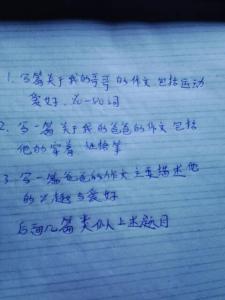 1. 写篇关于我的哥哥的作文.包括运动
爱好.
2. 写一篇关于我的爸爸的作文包括
他的穿着
3. 写一篇爸爸的作文主要描述他
的兴趣与爱好
后面几篇类似上述题目